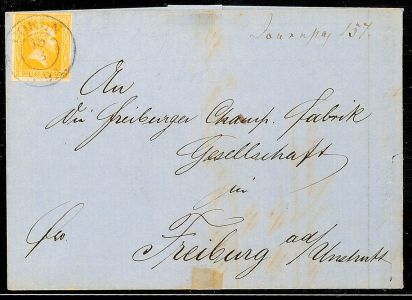 157.
An
Die Freiburger Champ. Fabrik
Gesellschaft
in
Freiburg a/d
Unstrutt